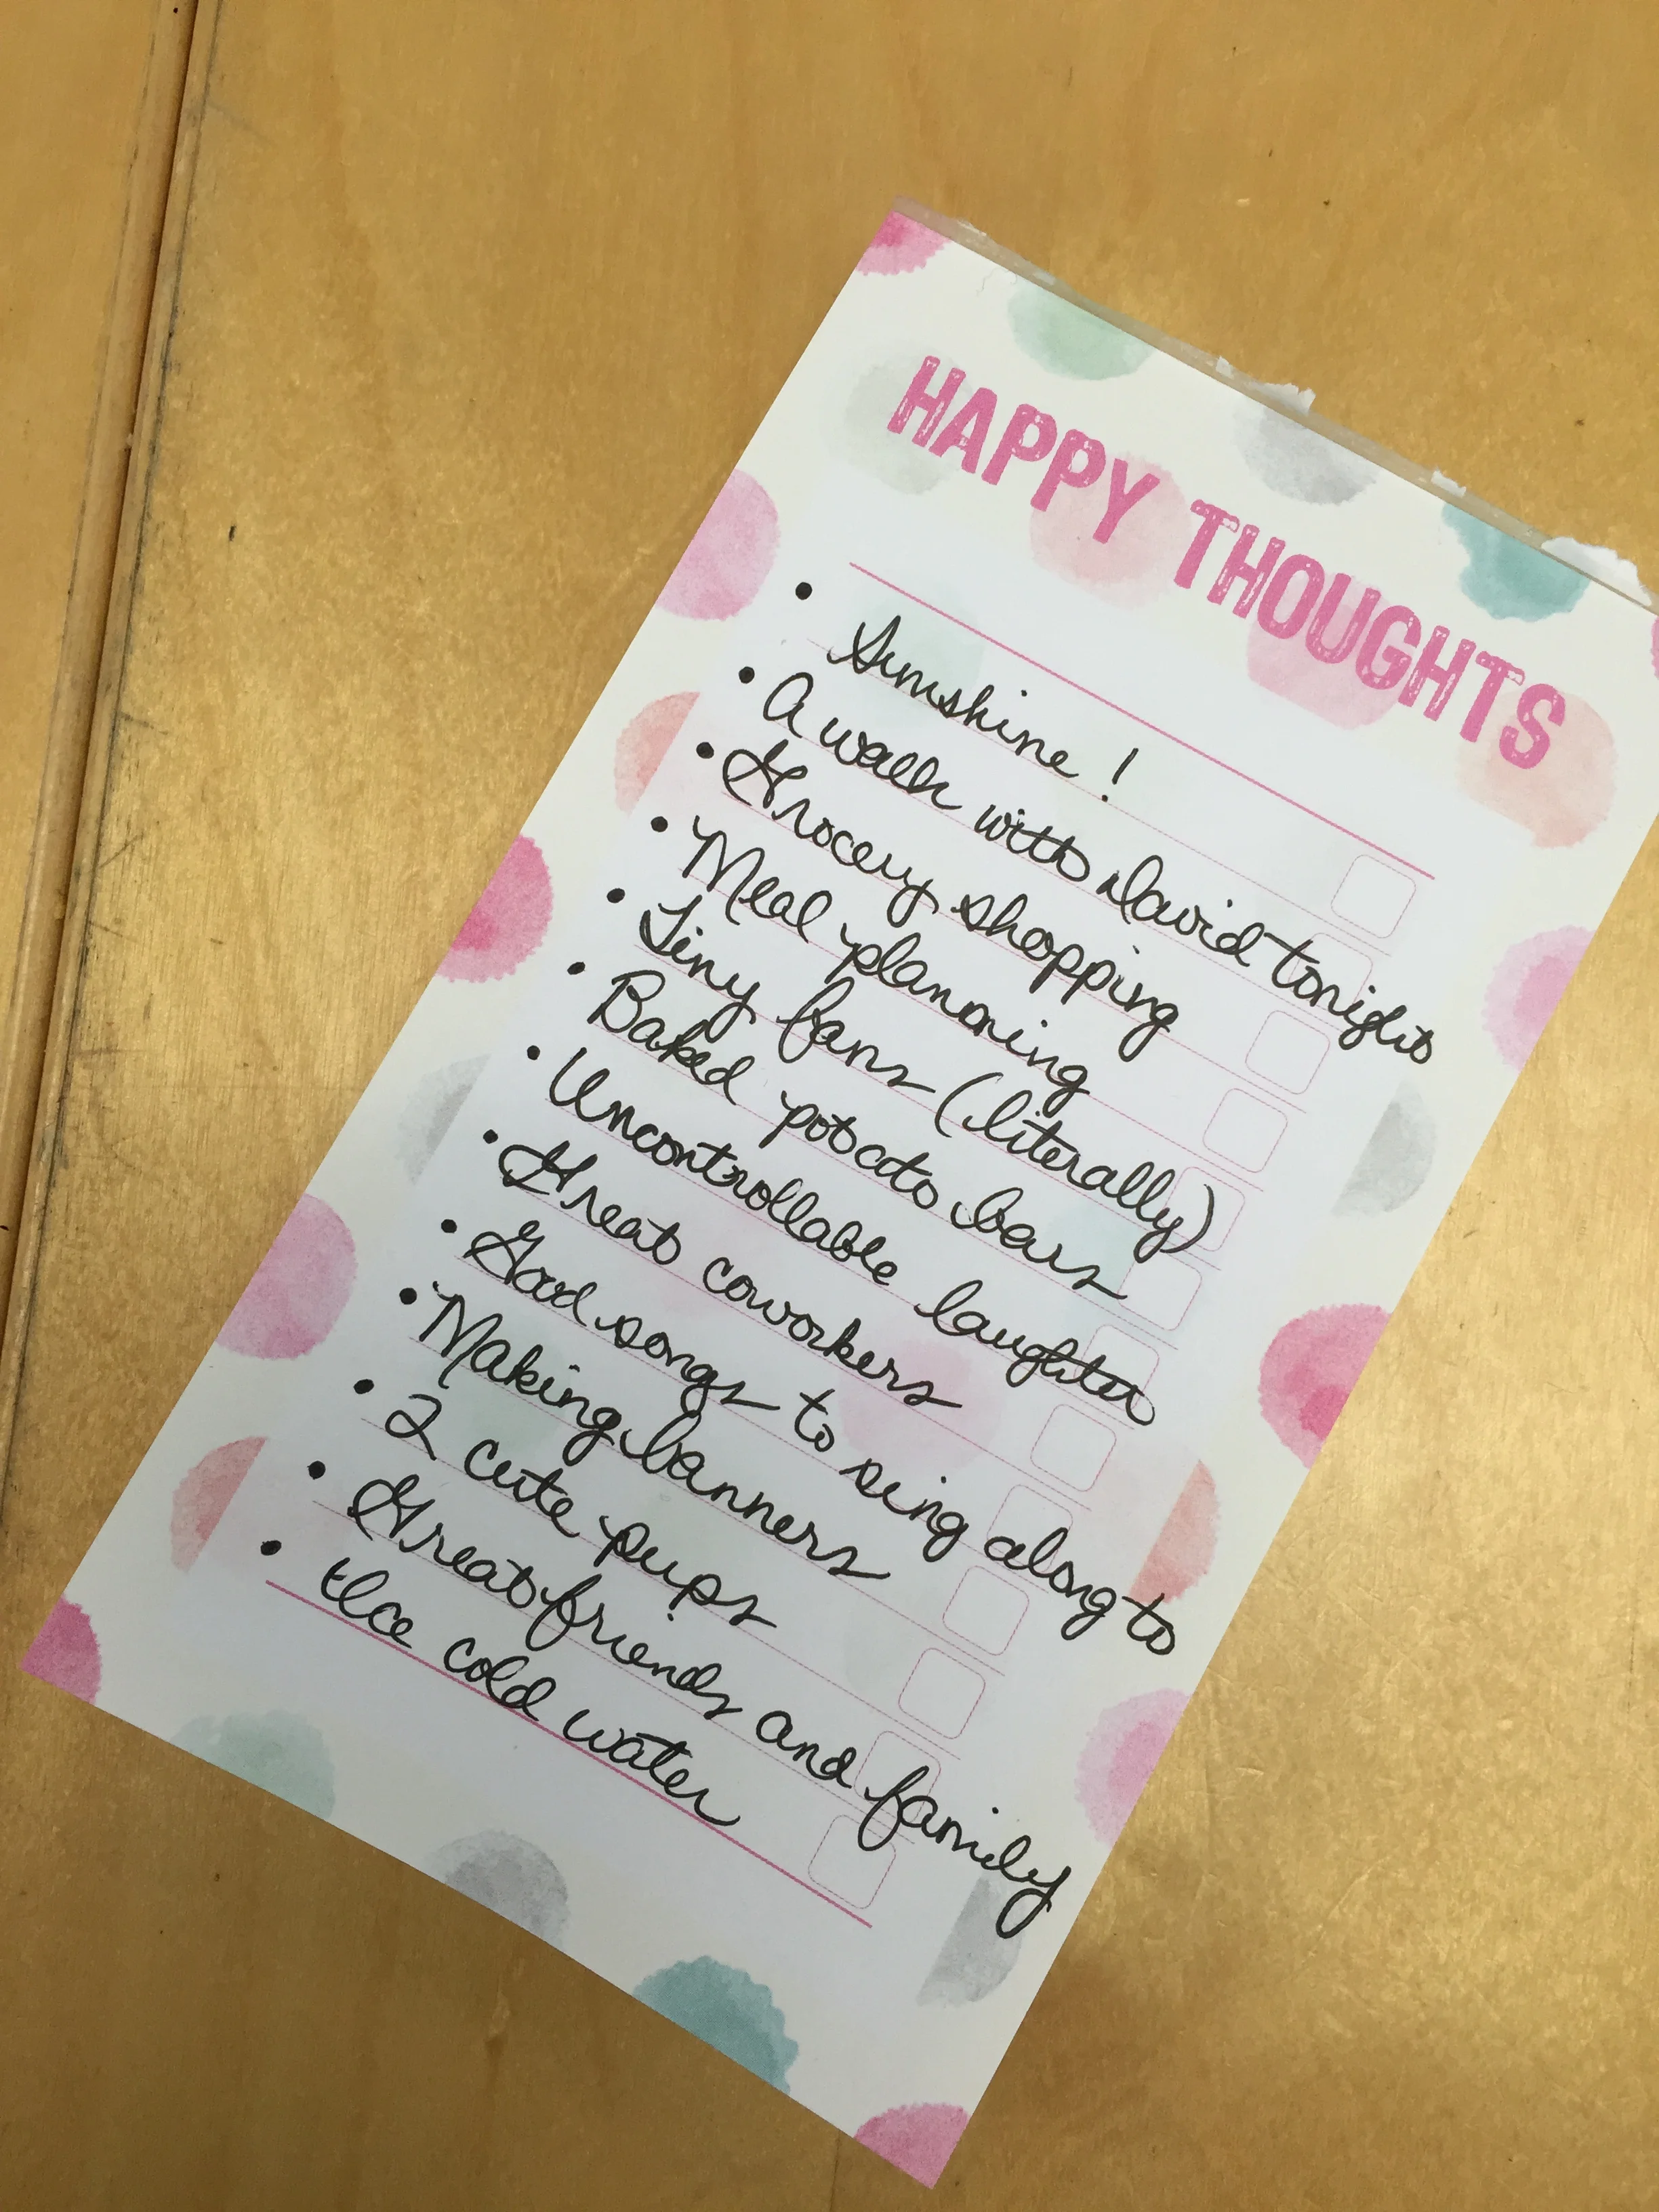 HAPPY THOUGHTS
• Sunshine!
• A walk with David tonight
• Grocery shopping
• Meal planning
• Tiny fans (literally)
• Baked potato bars
• Uncontrollable laughter
• Great coworkers
• Good songs to sing along to
• Making banners
• 2 cute pups
• Great friends and family
• Ice cold water